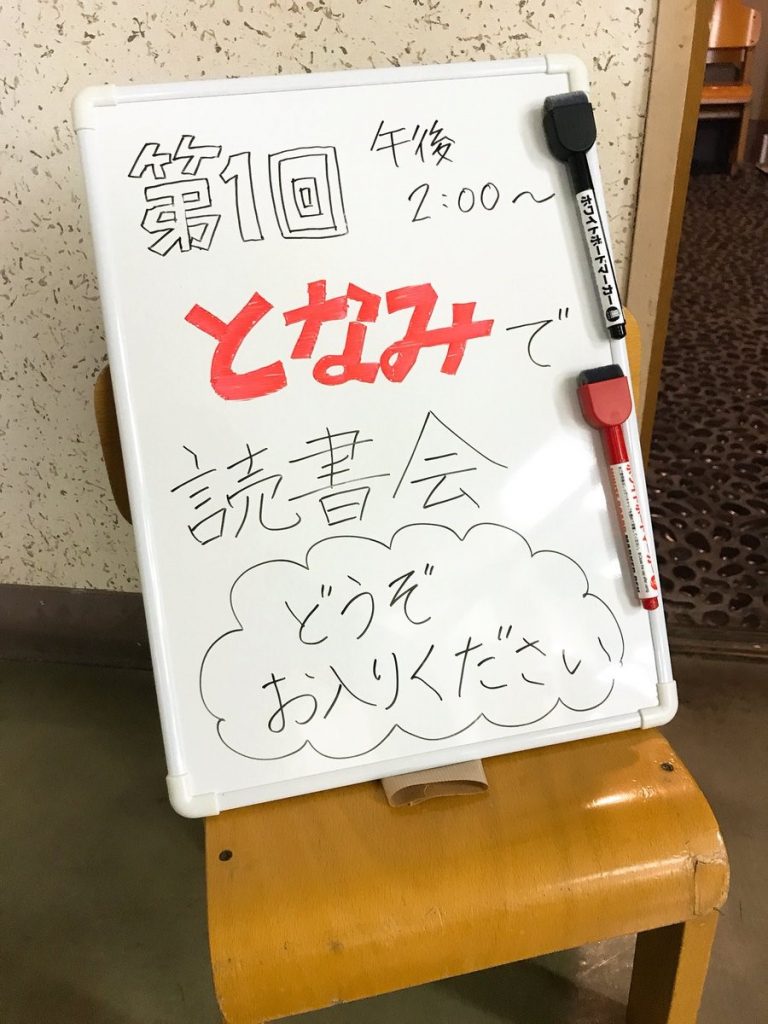 第1回
午後
2:00～
となみで
読書会
どうぞ
お入りください
ホワイトボードマーカー